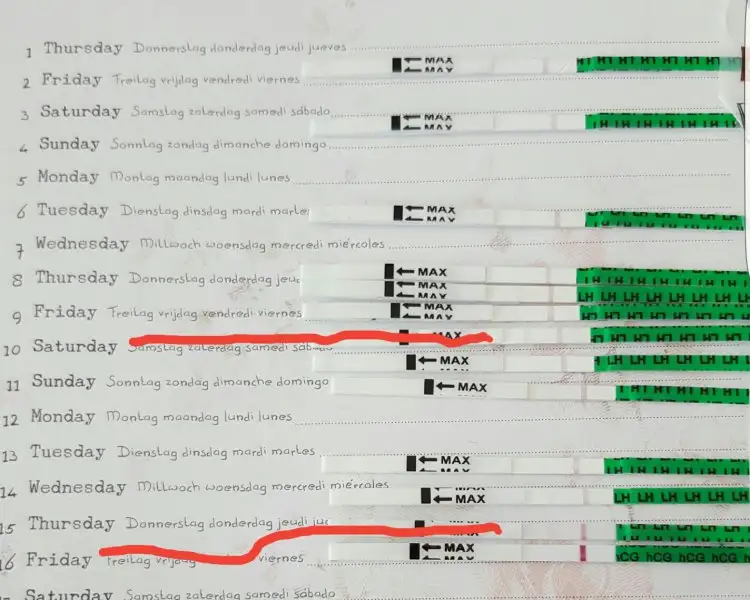 1 Thursday Donnerstag donderdag jeudi jueves
MAX
MAX
LH LH LH LH LH
2 Friday Freitag vrijdag vendredi viernes
3 Saturday Samstag zaterdag samedi sábado
MAX
MAX
LH LH LH LH LH LH
4 Sunday Sonntag zondag dimanche domingo
5 Monday Montag maandag lundi lunes
6 Tuesday Dienstag dinsdag mardi marte
MAX
MAX
LH LH LH LH LH LH
7 Wednesday Mittwoch woensdag mercredi miércoles
8 Thursday Donnerstag donderdag jeu
MAX
MAX
LH LH LH LH LH LH
9 Friday Freitag vrijdag vendredi viernes
MAX
MAX
LH LH LH LH LH LH
10 Saturday Samstag zaterdag samedi sáb
MAX
LH LH LH LH LH LH
MAX
LH LH LH LH LH
11 Sunday Sonntag zondag dimanche domingo
MAX
LH LH LH LH LH
12 Monday Montag maandag lundi lunes
13 Tuesday Dienstag dinsdag mardi martes
MAX
LH LH LH LH LH
14 Wednesday Mittwoch woensdag mercredi miércoles
MAX
MAX
LH LH LH LH LH
15 Thursday Donnerstag donderdag jeudi jue
LH LH LH LH LH
16 Friday Freitag vrijdag viernes
MAX
MAX
hCG hCG hCG hCG
Saturday Samstag zaterdag samedi sábado